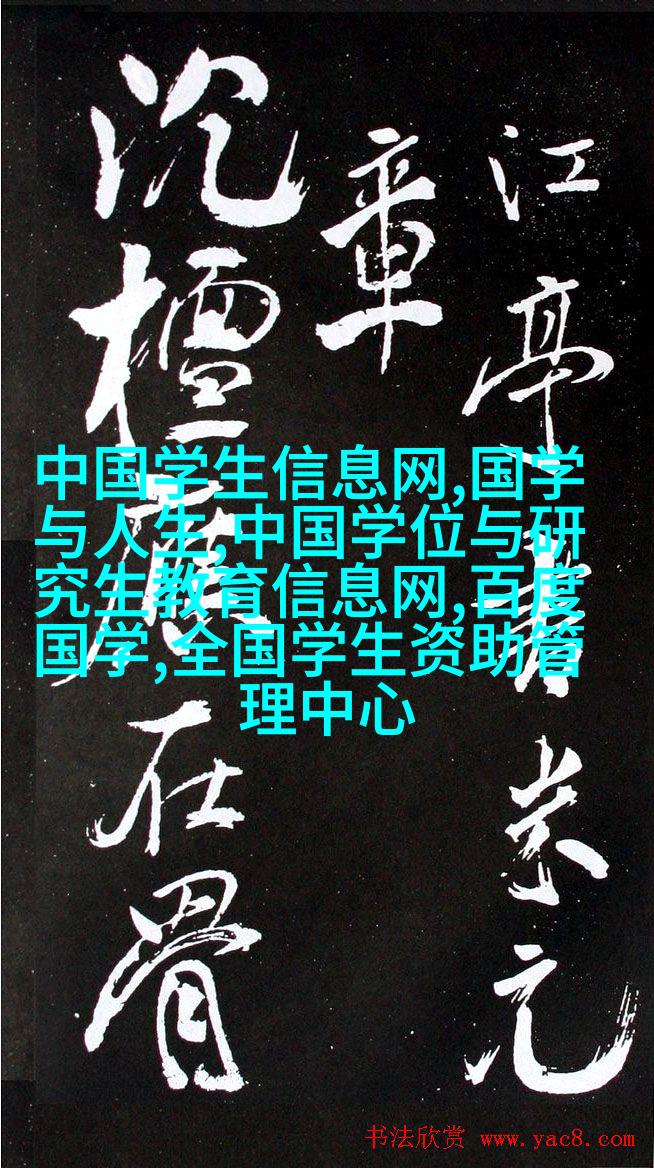 江亭書米元
章
沉檀 在骨
中国学生信息网,国学
与人生,中国学位与研
究生教育信息网,百度
国学,全国学生资助管
理中心
书法欣赏 www.yac8.com